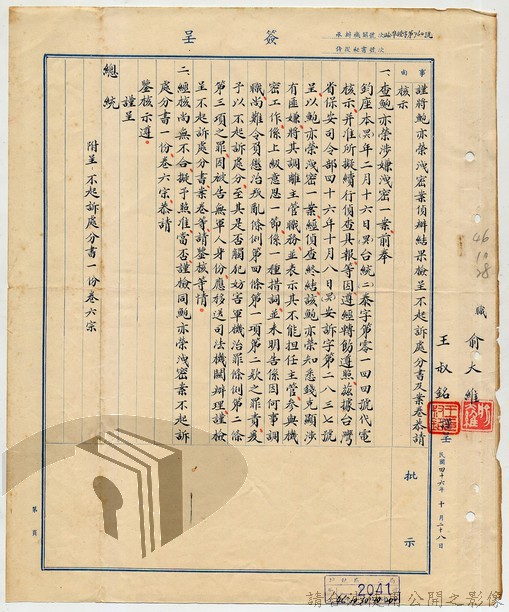 簽呈
承辦機關號次
侍從秘書號次
事由
謹將鮑亦榮洩密案偵辦結果檢呈不起訴處分書及案卷恭請
核示
一、查鮑亦榮涉嫌洩密一案前奉
鈞座本(46)年二月十六日(46)台統(二)泰字第零一四四號代電
核示并准所擬續行偵查具報等因遵經轉飭遵照茲據台灣
省保安司令部四十六年十月八日(46)安訴字第二八三七號
呈以鮑亦榮洩密一案經偵查終結該鮑亦榮知悉錢克顯涉
有匪嫌將其調離主管職務並表示其不能担任主管參與機
密工作係上級意思一節係一種措詞並未明告係因何事調
職尚難令負懲治叛亂條例第四條第一項第二款之罪責爰
予以不起訴處分至其是否觸犯妨害軍機治罪條例第二條
第三項之罪因被告無軍人身份應移送司法機關辦理謹檢
呈不起訴處分書案卷等請鑒核等情
二、經核尚無不合擬予照准當否謹檢同鮑亦榮洩密案不起訴
處分書一份卷六宗恭請
鑒核示遵
謹呈
總統
附呈不起訴處分書一份卷六宗
職 俞大維
王叔銘 謹呈
民國四十六年十月二十八日
46
10
28
批示
第 頁
2041